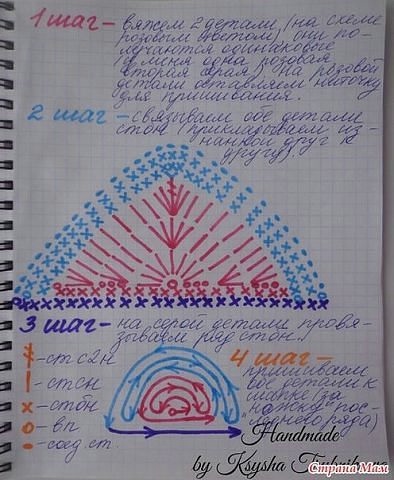 1 шаг - вяжем 2 детали (на схеме
розовым цветом), они по-
лучаются одинаковые
(у меня одна розовая
вторая серая). На розовой
детали оставляем ниточку
для пришивания.
2 шаг - связываем обе детали
стбн (прикладываем из-
нанкой друг к
другу).
3 шаг - на серой детали провя-
зываем ряд стбн.
- ст с2н
- стсн
- стбн
- вп
- соед. ст.
4 шаг -
пришиваем
обе детали к
шапке (за
"ножку" пос-
леднего ряда)
Handmade
by Ksysha
Страна Мам